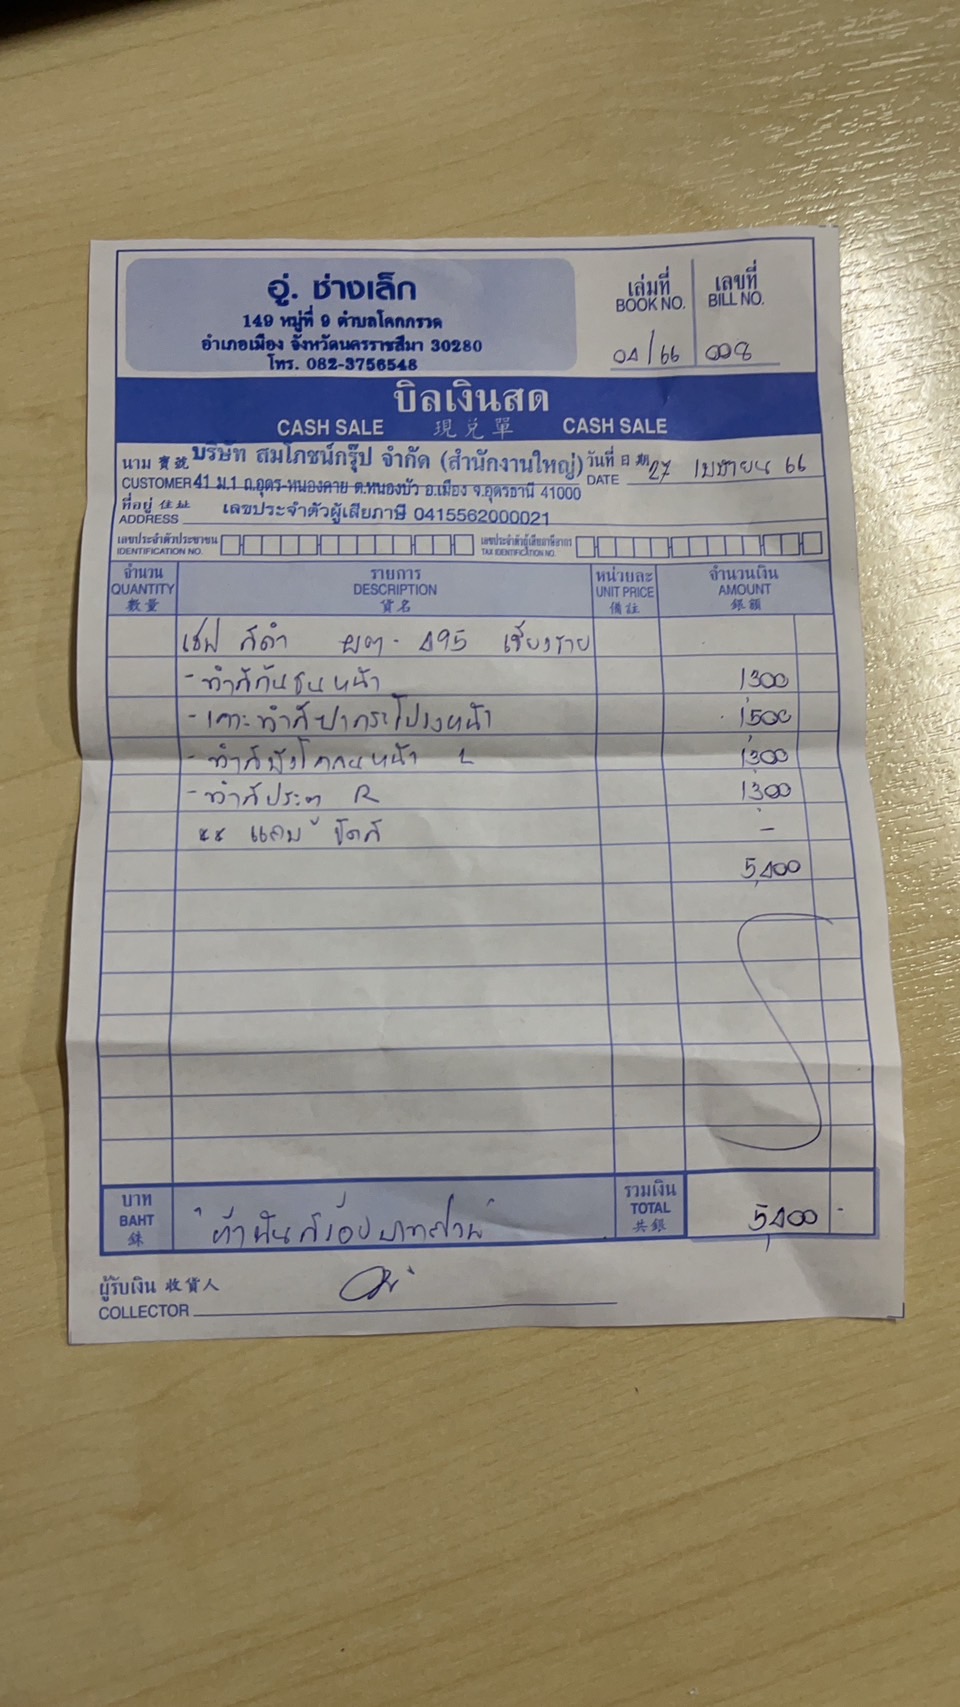 อู่. ช่างเล็ก
149 หมู่ที่ 9 ตำบลโคกกรวด
อำเภอเมือง จังหวัดนครราชสีมา 30280
โทร. 082-3756548
เล่มที่ เลขที่
BOOK NO. BILL NO.
04/66 008
บิลเงินสด
CASH SALE 現兌單 CASH SALE
นาม 寳號 บริษัท สมโภชน์กรุ๊ป จำกัด (สำนักงานใหญ่) วันที่ 日期 27 เมษายน 66
CUSTOMER 41 ม.1 ถ.อุดร-หนองคาย ต.หนองบัว อ.เมือง จ.อุดรธานี 41000 DATE
ที่อยู่ 住址 เลขประจำตัวผู้เสียภาษี 0415562000021
ADDRESS
เลขประจำตัวประชาชน เลขประจำตัวผู้เสียภาษีอากร
IDENTIFICATION NO. TAX IDENTIFICATION NO.
จำนวน รายการ หน่วยละ จำนวนเงิน
QUANTITY DESCRIPTION UNIT PRICE AMOUNT
數量 貨名 備註 銀額
เชฟ สีดำ ผต - 495 เชียงราย
- ทำสีกันชนหน้า 1,300
- เคาะทำสีฝากระโปรงหน้า 1,500
- ทำสีบังโคลนหน้า L 1,300
- ทำสีประตู R 1,300
** แถม ขัดสี -
5,400
บาท รวมเงิน
BAHT "ห้าพันสี่ร้อยบาทถ้วน" TOTAL 5,400 -
銖 共銀
ผู้รับเงิน 收貨人
COLLECTOR